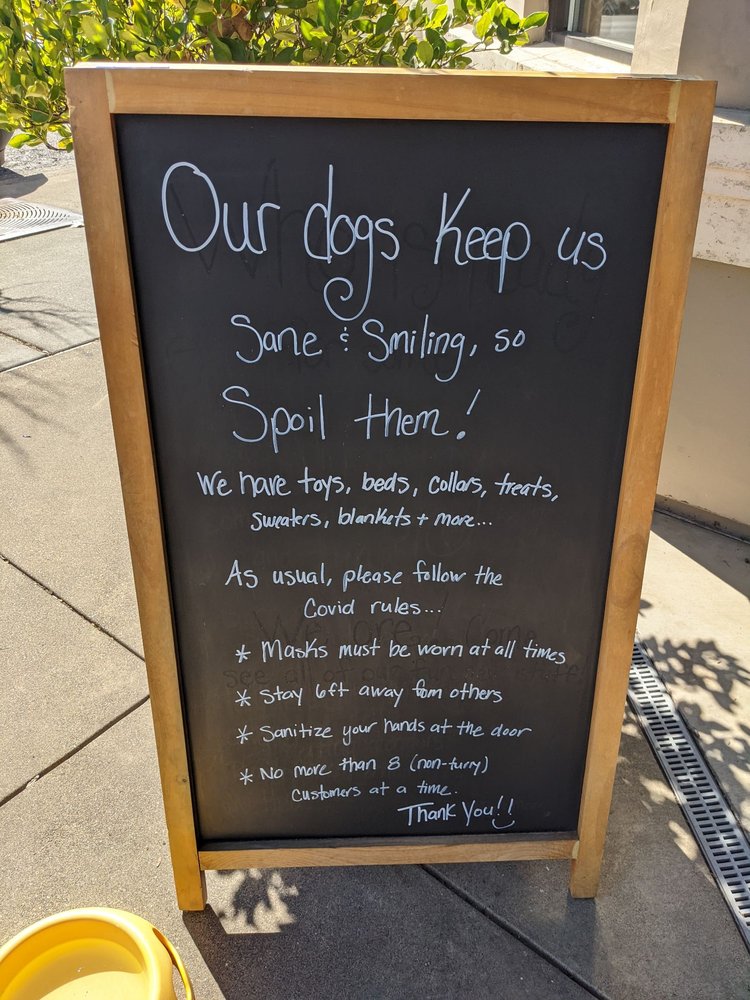 Our dogs keep us
Sane & Smiling, so
Spoil them!
We have toys, beds, collars, treats,
sweaters, blankets + more...
As usual, please follow the
Covid rules...
* Masks must be worn at all times
* Stay 6ft away from others
* Sanitize your hands at the door
* No more than 8 (non-furry)
customers at a time.
Thank You!!